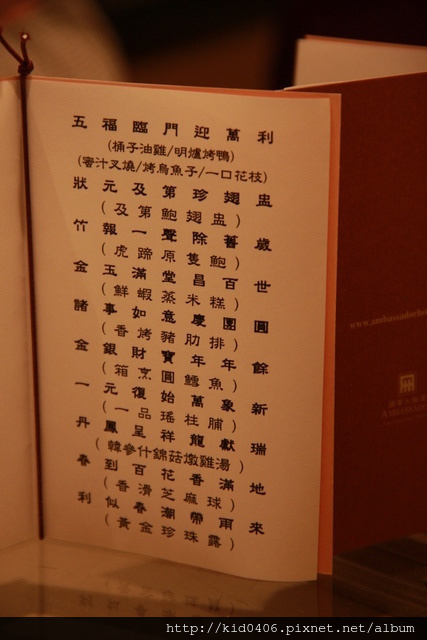 五福臨門迎萬利
(桶子油雞/明爐烤鴨)
(蜜汁叉燒/烤烏魚子/一口花枝)
狀元及第珍翅盅
(及第鮑翅盅)
竹報一聲除舊歲
(虎蹄原隻鮑)
金玉滿堂昌百世
(鮮蝦蒸米糕)
諸事如意慶團圓
(香烤豬肋排)
金銀財寶年年餘
(箱烹圓鱈魚)
一元復始萬象新
(一品瑤柱脯)
丹鳳呈祥龍獻瑞
(韓參什錦菇燉雞湯)
春到百花香滿地
(香滑芝麻球)
利似春潮帶雨來
(黃金珍珠露)
http://kid0406.pixnet.net/album